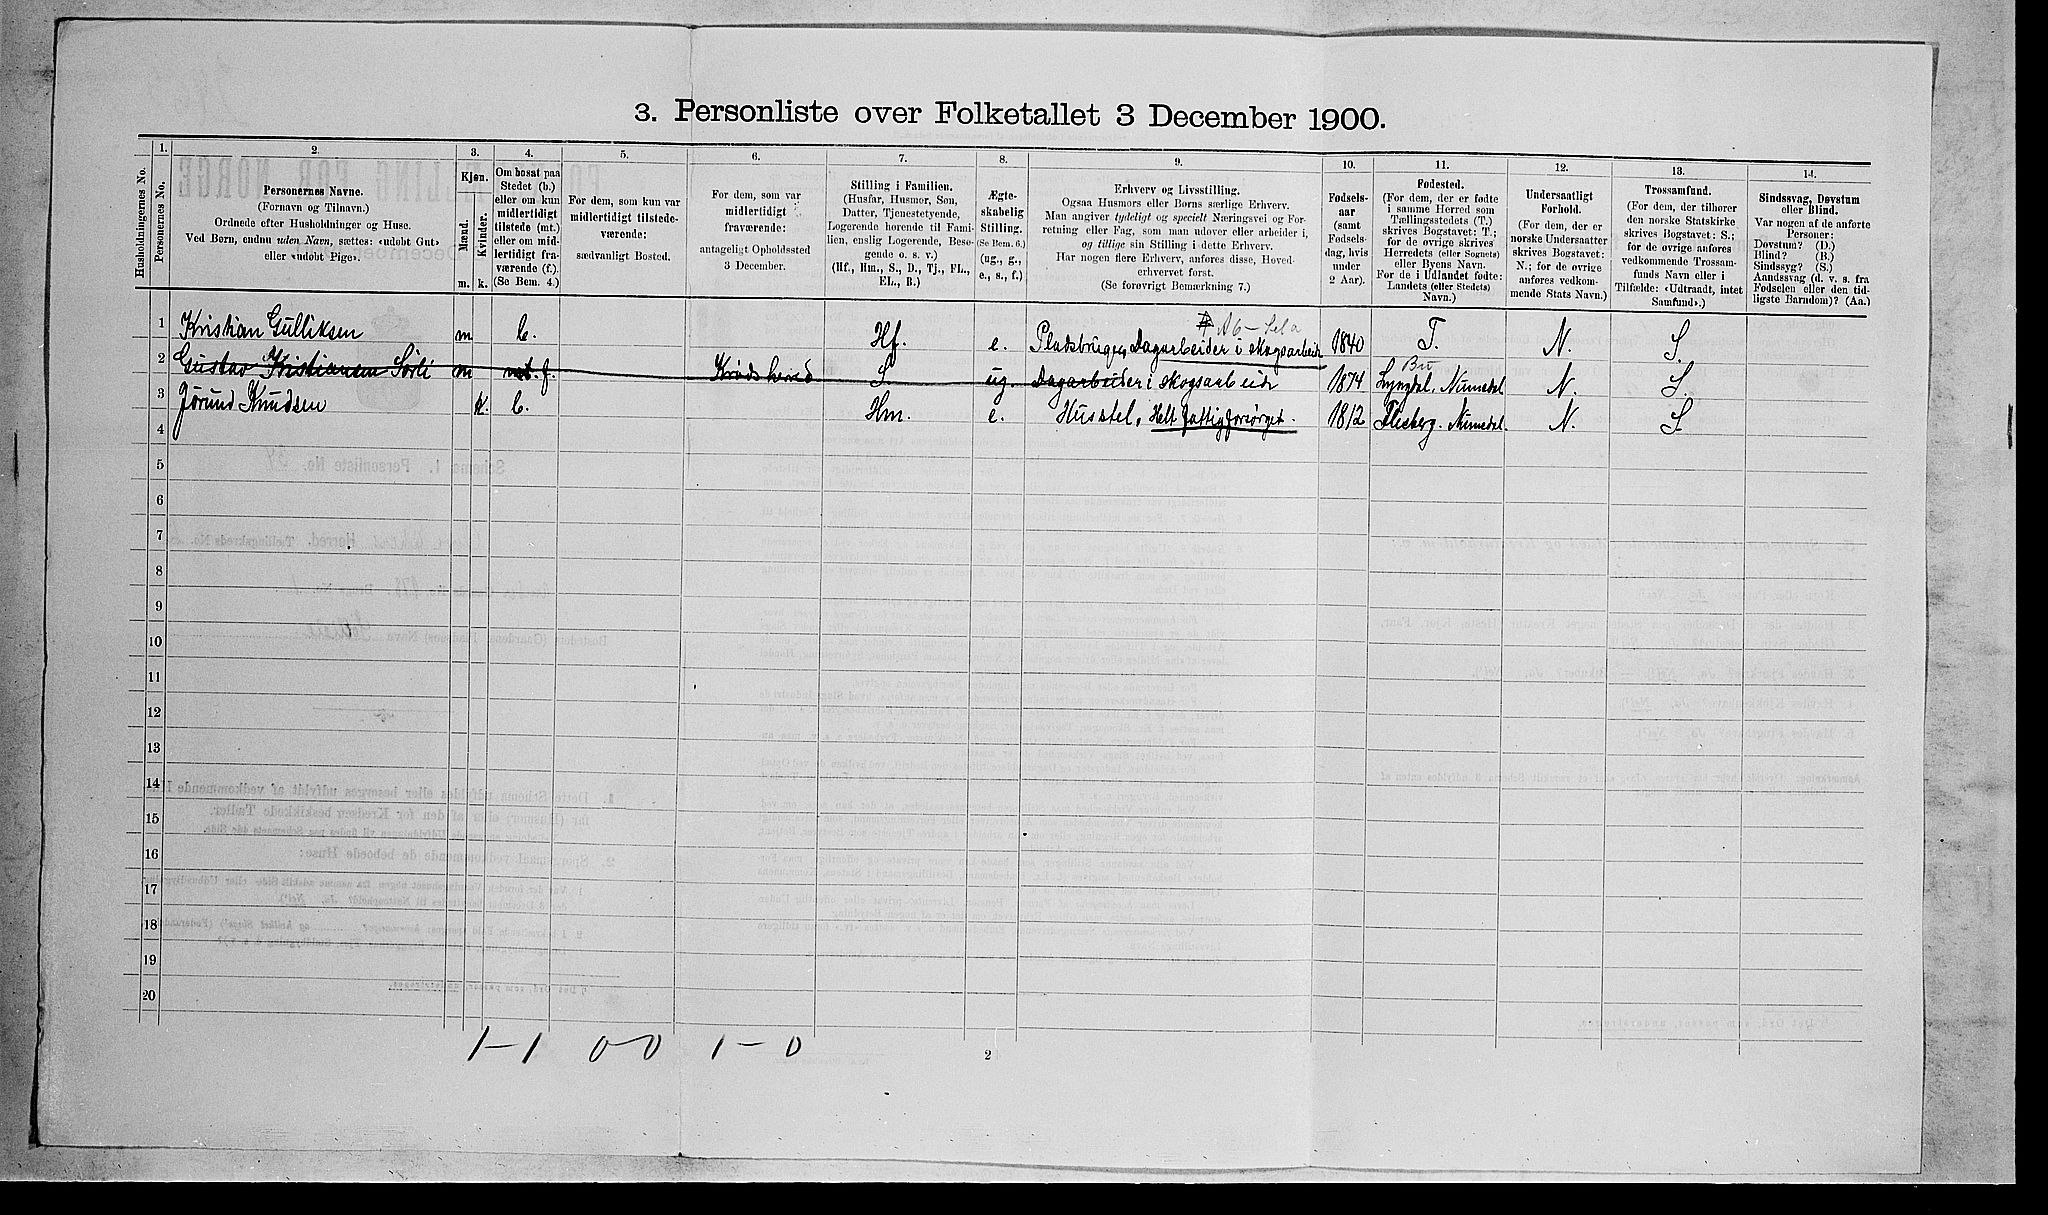 3. Personliste over Folketallet 3 December 1900.
1. 2. 3. 4. 5. 6. 7. 8. 9. 10. 11. 12. 13. 14.
Husholdningernes No.
Personernes No.
Personernes Navne.
(Fornavn og Tilnavn.)
Ordnede efter Husholdninger og Huse.
Ved Børn, endnu uden Navn, sættes: «udøbt Gut»
eller «udøbt Pige».
Kjøn.
Mænd.
Kvinder.
m. k.
Om bosat paa
Stedet (b.)
eller om kun
midlertidigt
tilstede (mt.)
eller om mid-
lertidigt fra-
værende (f.)
(Se Bem. 4.)
For dem, som kun var
midlertidigt tilstede-
værende:
sædvanligt Bosted.
For dem, som var
midlertidigt
fraværende:
antageligt Opholdssted
3 December.
Stilling i Familien.
(Husfar, Husmor, Søn,
Datter, Tjenestetyende,
Logerende hørende til Fami-
lien, enslig Logerende, Besø-
gende o. s. v.)
(Hf., Hm., S., D., Tj., FL.,
EL., B.)
Ægte-
skabelig
Stilling.
(Se Bem. 6.)
(ug., g.,
e., s., f.)
Erhverv og Livsstilling.
Ogsaa Husmors eller Børns særlige Erhverv.
Man angiver tydeligt og specielt Næringsvei og For-
retning eller Fag, som man udøver eller arbeider i,
og tillige sin Stilling i dette Erhverv.
Har nogen flere Erhverv, anføres disse, Hoved-
erhvervet først.
(Se forøvrigt Bemærkning 7.)
Fødsels-
aar
(samt
Fødsels-
dag, hvis
under
2 Aar).
Fødested.
(For dem, der er fødte
i samme Herred som
Tællingsstedets (T.)
skrives Bogstavet: T.;
for de øvrige skrives
Herredets (eller Sognets)
eller Byens Navn.
For de i Udlandet fødte:
Landets (eller Stedets)
Navn.)
Undersaatligt
Forhold.
(For dem, der er
norske Undersaatter
skrives Bogstavet:
N.; for de øvrige
anføres vedkom-
mende Stats Navn.)
Trossamfund.
(For dem, der tilhører
den norske Statskirke
skrives Bogstavet: S.;
for de øvrige anføres
vedkommende Trossam-
funds Navn eller i
Tilfælde: «Udtraadt, intet
Samfund».)
Sindssvag, Døvstum
eller Blind.
Var nogen af de anførte
Personer:
Døvstum? (D.)
Blind? (B.)
Sindssyg? (S.)
Aandssvag (d. v. s. fra
Fødselen eller den tid-
ligste Barndom)? (Aa.)
1 Kristian Gulliksen m b. Hf. e. Pladsbruger, Dagarbeider i skogsarbeide 1840 T. N. S.
2 Gustav Kristiansen Sørli m mt. f. Krødsherred S. ug. Dagarbeider i skogsarbeide 1874 Lyngdal. Numedal N. S.
3 Jørund Knudsen k. b. Hm. e. Husstel, Helt fattigforsørget. 1812 Flesberg. Numedal. N. S
4
5
6
7
8
9
10
11
12
13
14
15
16
17
18
19
20
1-1 0-0 1-0
2